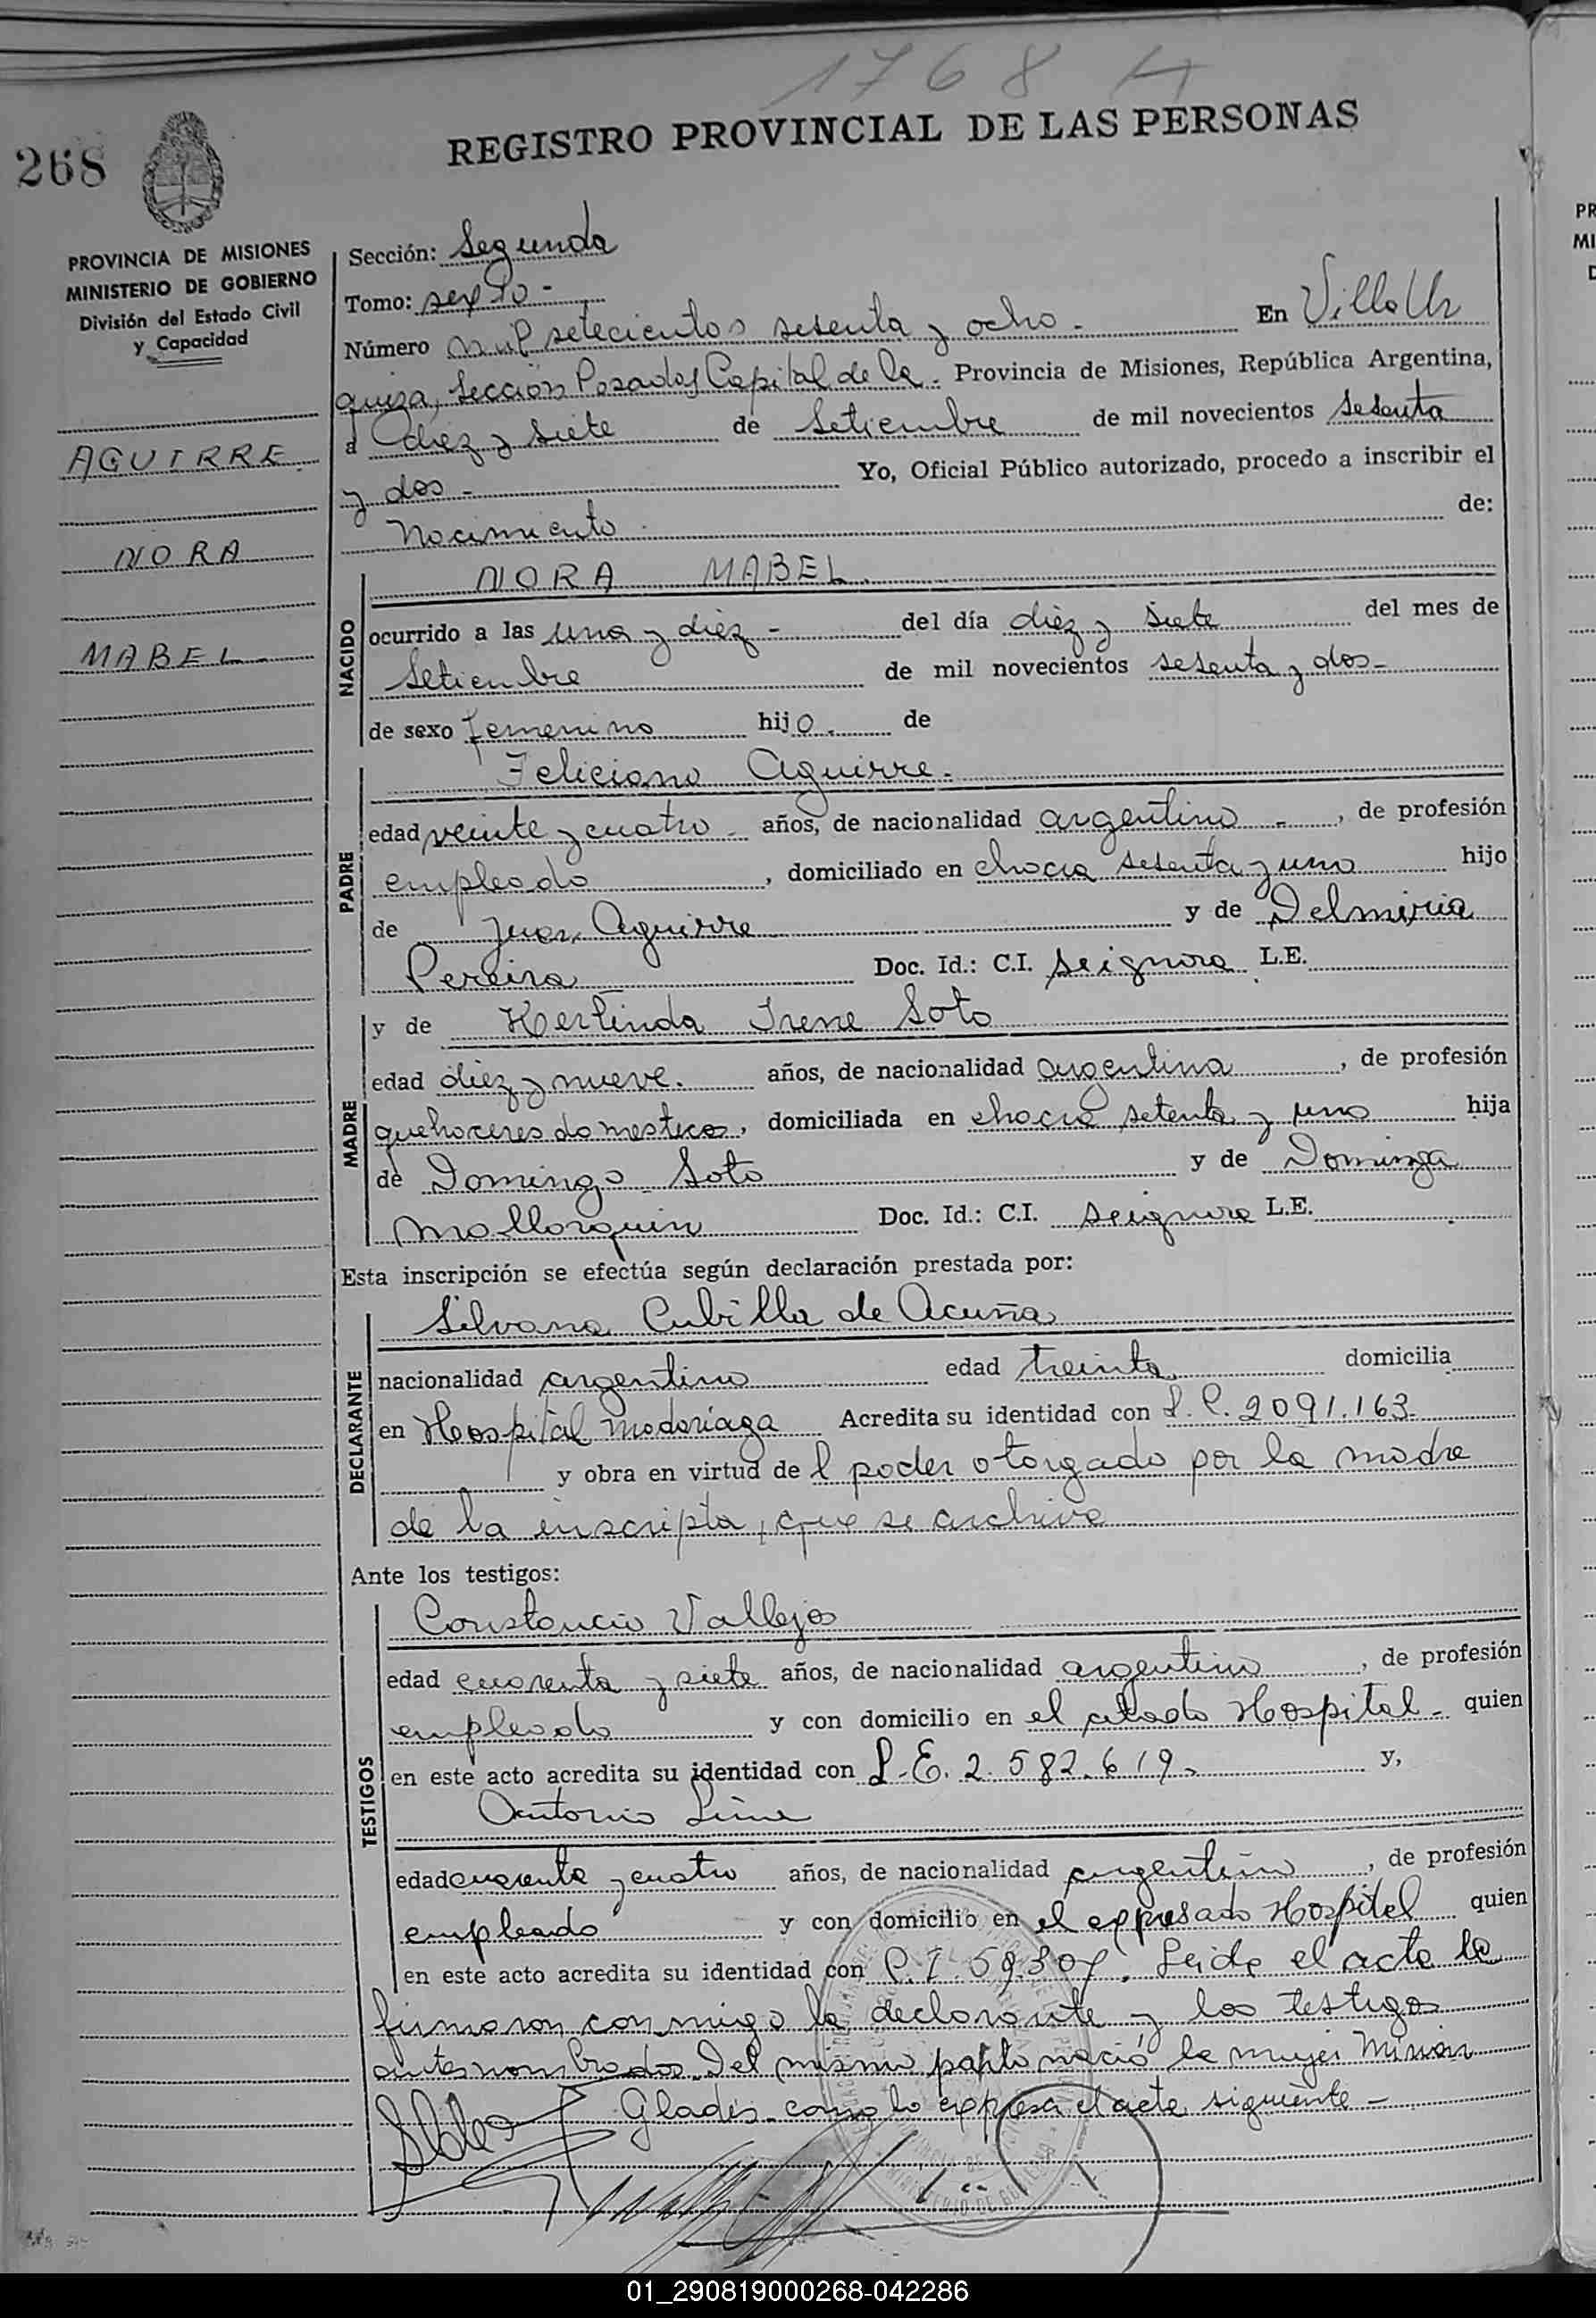 1768
268
REGISTRO PROVINCIAL DE LAS PERSONAS
PROVINCIA DE MISIONES
MINISTERIO DE GOBIERNO
División del Estado Civil
y Capacidad
AGUIRRE
NORA
MABEL
Sección: Segunda
Tomo: sexto -
Número mil setecientos sesenta y ocho - En Villa Ur
quiza, Sección Posadas Capital de la - Provincia de Misiones, República Argentina,
a diez y siete de Setiembre de mil novecientos setenta
y dos - Yo, Oficial Público autorizado, procedo a inscribir el
Nacimiento de:
NACIDO
NORA MABEL
ocurrido a las una y diez - del día diez y siete del mes de
Setiembre de mil novecientos setenta y dos -
de sexo femenino hijo de
PADRE
Feliciano Aguirre.
edad veinte y cuatro - años, de nacionalidad argentino -, de profesión
empleado, domiciliado en chacra setenta y uno hijo
de Juan Aguirre y de Delmiria
Pereira Doc. Id.: C.I. se ignora L.E.
MADRE
y de Herlinda Irene Soto
edad diez y nueve. años, de nacionalidad argentina, de profesión
quehaceres domesticos, domiciliada en chacra setenta y uno hija
de Domingo Soto y de Dominga
Mallorquin Doc. Id.: C.I. se ignora L.E.
Esta inscripción se efectúa según declaración prestada por:
DECLARANTE
Silvana Cubilla de Acuña
nacionalidad argentina edad treinta domicilia
en Hospital Madariaga Acredita su identidad con L.C. 2091.163-
y obra en virtud de l poder otorgado por la madre
de la inscripta, que se archiva
Ante los testigos:
TESTIGOS
Constancio Vallejos
edad cuarenta y siete años, de nacionalidad argentino, de profesión
empleado y con domicilio en el citado Hospital - quien
en este acto acredita su identidad con L.E. 2.582.619- y,
Antonio
edad cuarenta y cuatro años, de nacionalidad argentino, de profesión
empleado y con domicilio en el expresado Hospital quien
en este acto acredita su identidad con C.I. Leida el acta la
firmaron conmigo la declarante y los testigos
antes nombrados. Del mismo parto nació la mujer Mirian
Gladis como lo expresa el acta siguiente -
01_290819000268-042286